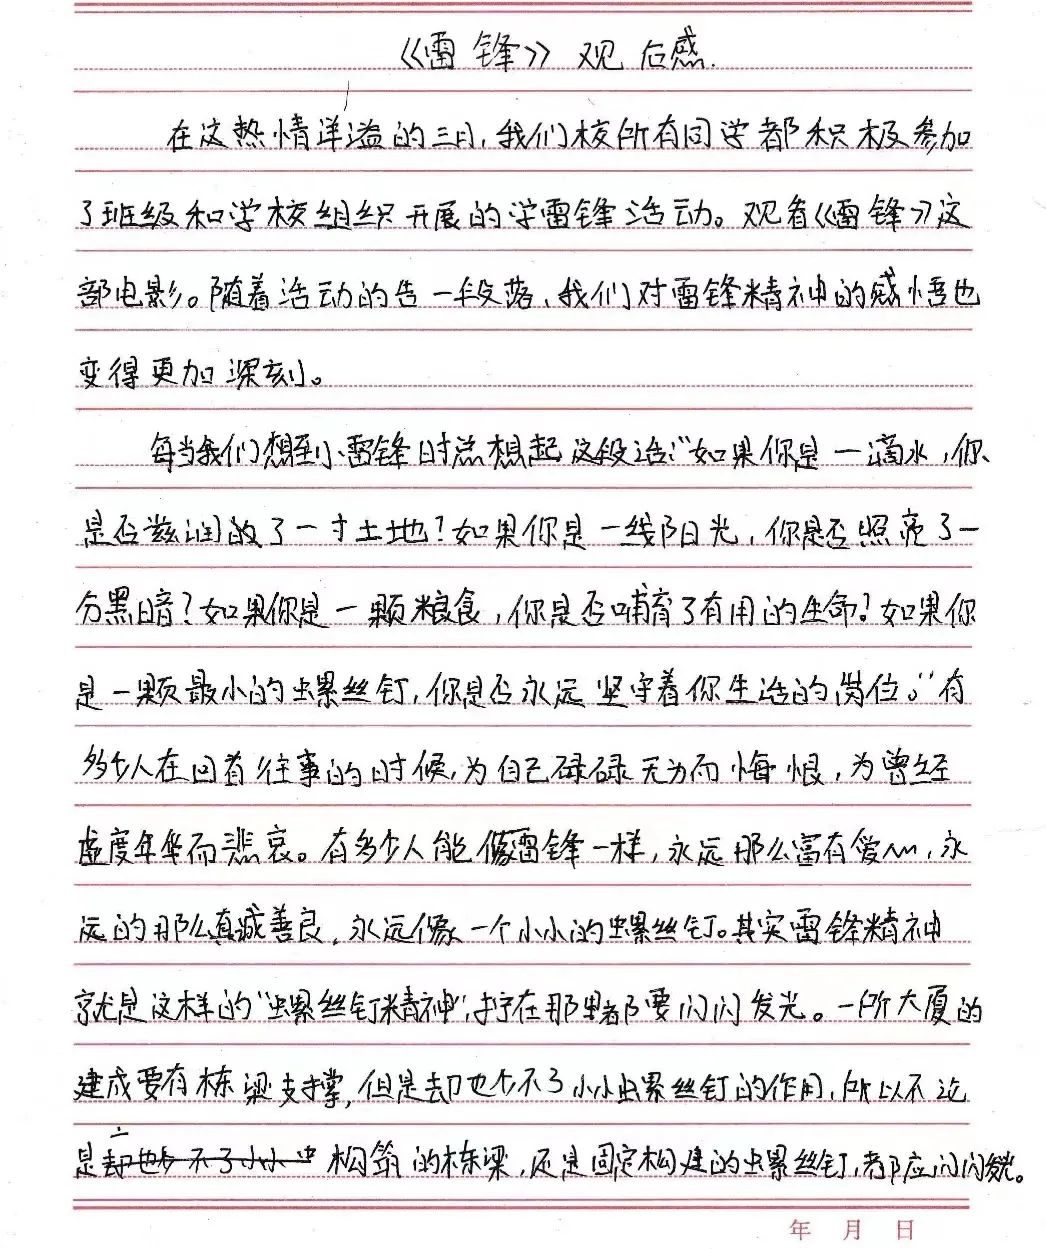 《雷锋》观后感.
在这热情洋溢的三月,我们校所有同学都积极参加
了班级和学校组织开展的学雷锋活动。观看《雷锋》这
部电影。随着活动的告一段落,我们对雷锋精神的感悟也
变得更加深刻。
每当我们想到小雷锋时总想起这段话:“如果你是一滴水,你
是否滋润的了一寸土地?如果你是一线阳光,你是否照亮了一
分黑暗?如果你是一颗粮食,你是否哺育了有用的生命?如果你
是一颗最小的螺丝钉,你是否永远坚守着你生活的岗位。”有
多少人在回首往事的时候,为自己碌碌无为而悔恨,为曾经
虚度年华而悲哀。有多少人能像雷锋一样,永远那么富有爱心,永
远的那么真诚善良,永远像一个小小的螺丝钉。其实雷锋精神
就是这样的“螺丝钉精神”,拧在那里都要闪闪发光。一所大厦的
建成要有栋梁支撑,但是却也少不了小小螺丝钉的作用,所以不论
是却也少不了小小虫构筑的栋梁,还是固定构建的螺丝钉,都应闪闪发光。
年 月 日